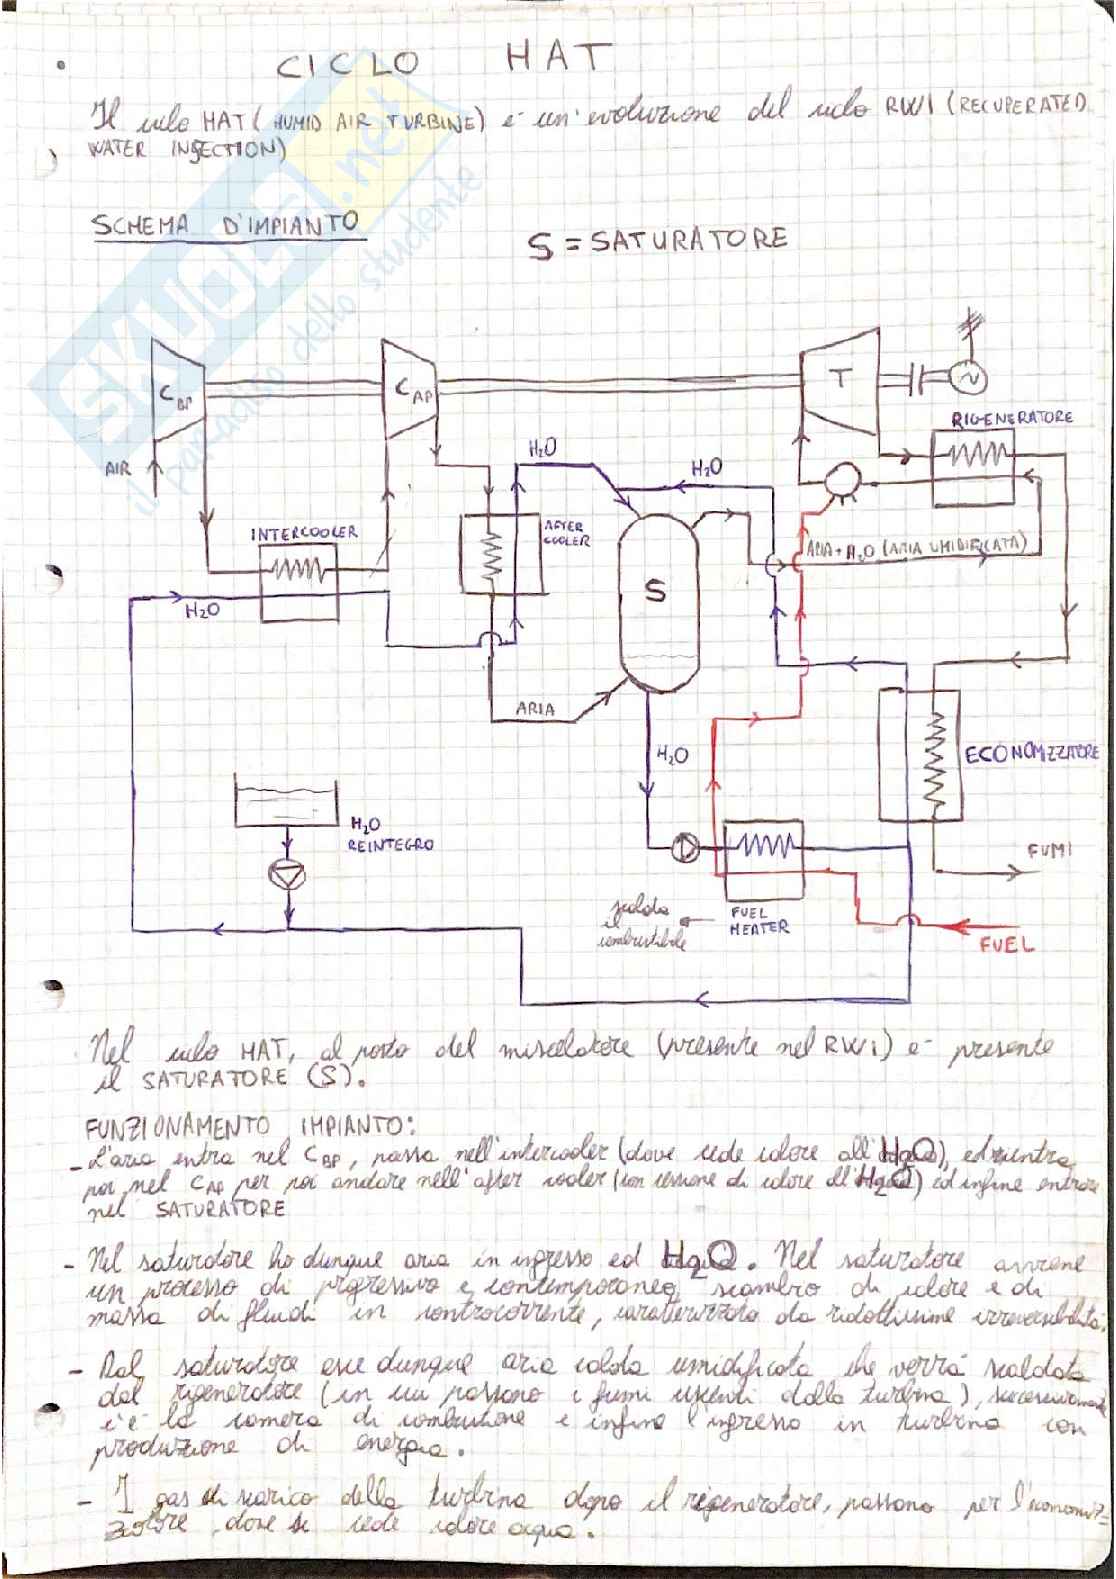 CICLO HAT
Il ciclo HAT (HUMID AIR TURBINE) è un'evoluzione del ciclo RWI (RECUPERATED
WATER INJECTION)
SKUOLA.net
il paradiso dello studente
SCHEMA D'IMPIANTO
S = SATURATORE
C BP
C AP
T
~
RIGENERATORE
AIR
H2O
H2O
INTERCOOLER
AFTER
COOLER
ARIA + H2O (ARIA UMIDIFICATA)
S
H2O
ARIA
H2O
ECONOMIZZATORE
H2O
REINTEGRO
FUMI
scalda
il
combustibile
FUEL
HEATER
FUEL
Nel ciclo HAT, al posto del miscelatore (presente nel RWI) è presente
il SATURATORE (S).
FUNZIONAMENTO IMPIANTO:
- L'aria entra nel C BP, passa nell'intercooler (dove cede calore all'H2O), ed rientra
poi nel C AP per poi andare nell'after cooler (con cessione di calore all'H2O) ed infine entrare
nel SATURATORE
- Nel saturatore ho dunque aria in ingresso ed H2O. Nel saturatore avviene
un processo di progressivo e contemporaneo scambio di calore e di
massa di fluidi in controcorrente, caratterizzato da ridottissime irreversibilità.
- Dal saturatore esce dunque aria calda umidificata che verrà scaldata
dal rigeneratore (in cui passano i fumi uscenti dalla turbina), successivamente
c'è la camera di combustione e infine l'ingresso in turbina con
produzione di energia.
- I gas di scarico della turbina dopo il rigeneratore, passano per l'economiz=
zatore, dove si cede calore acqua.